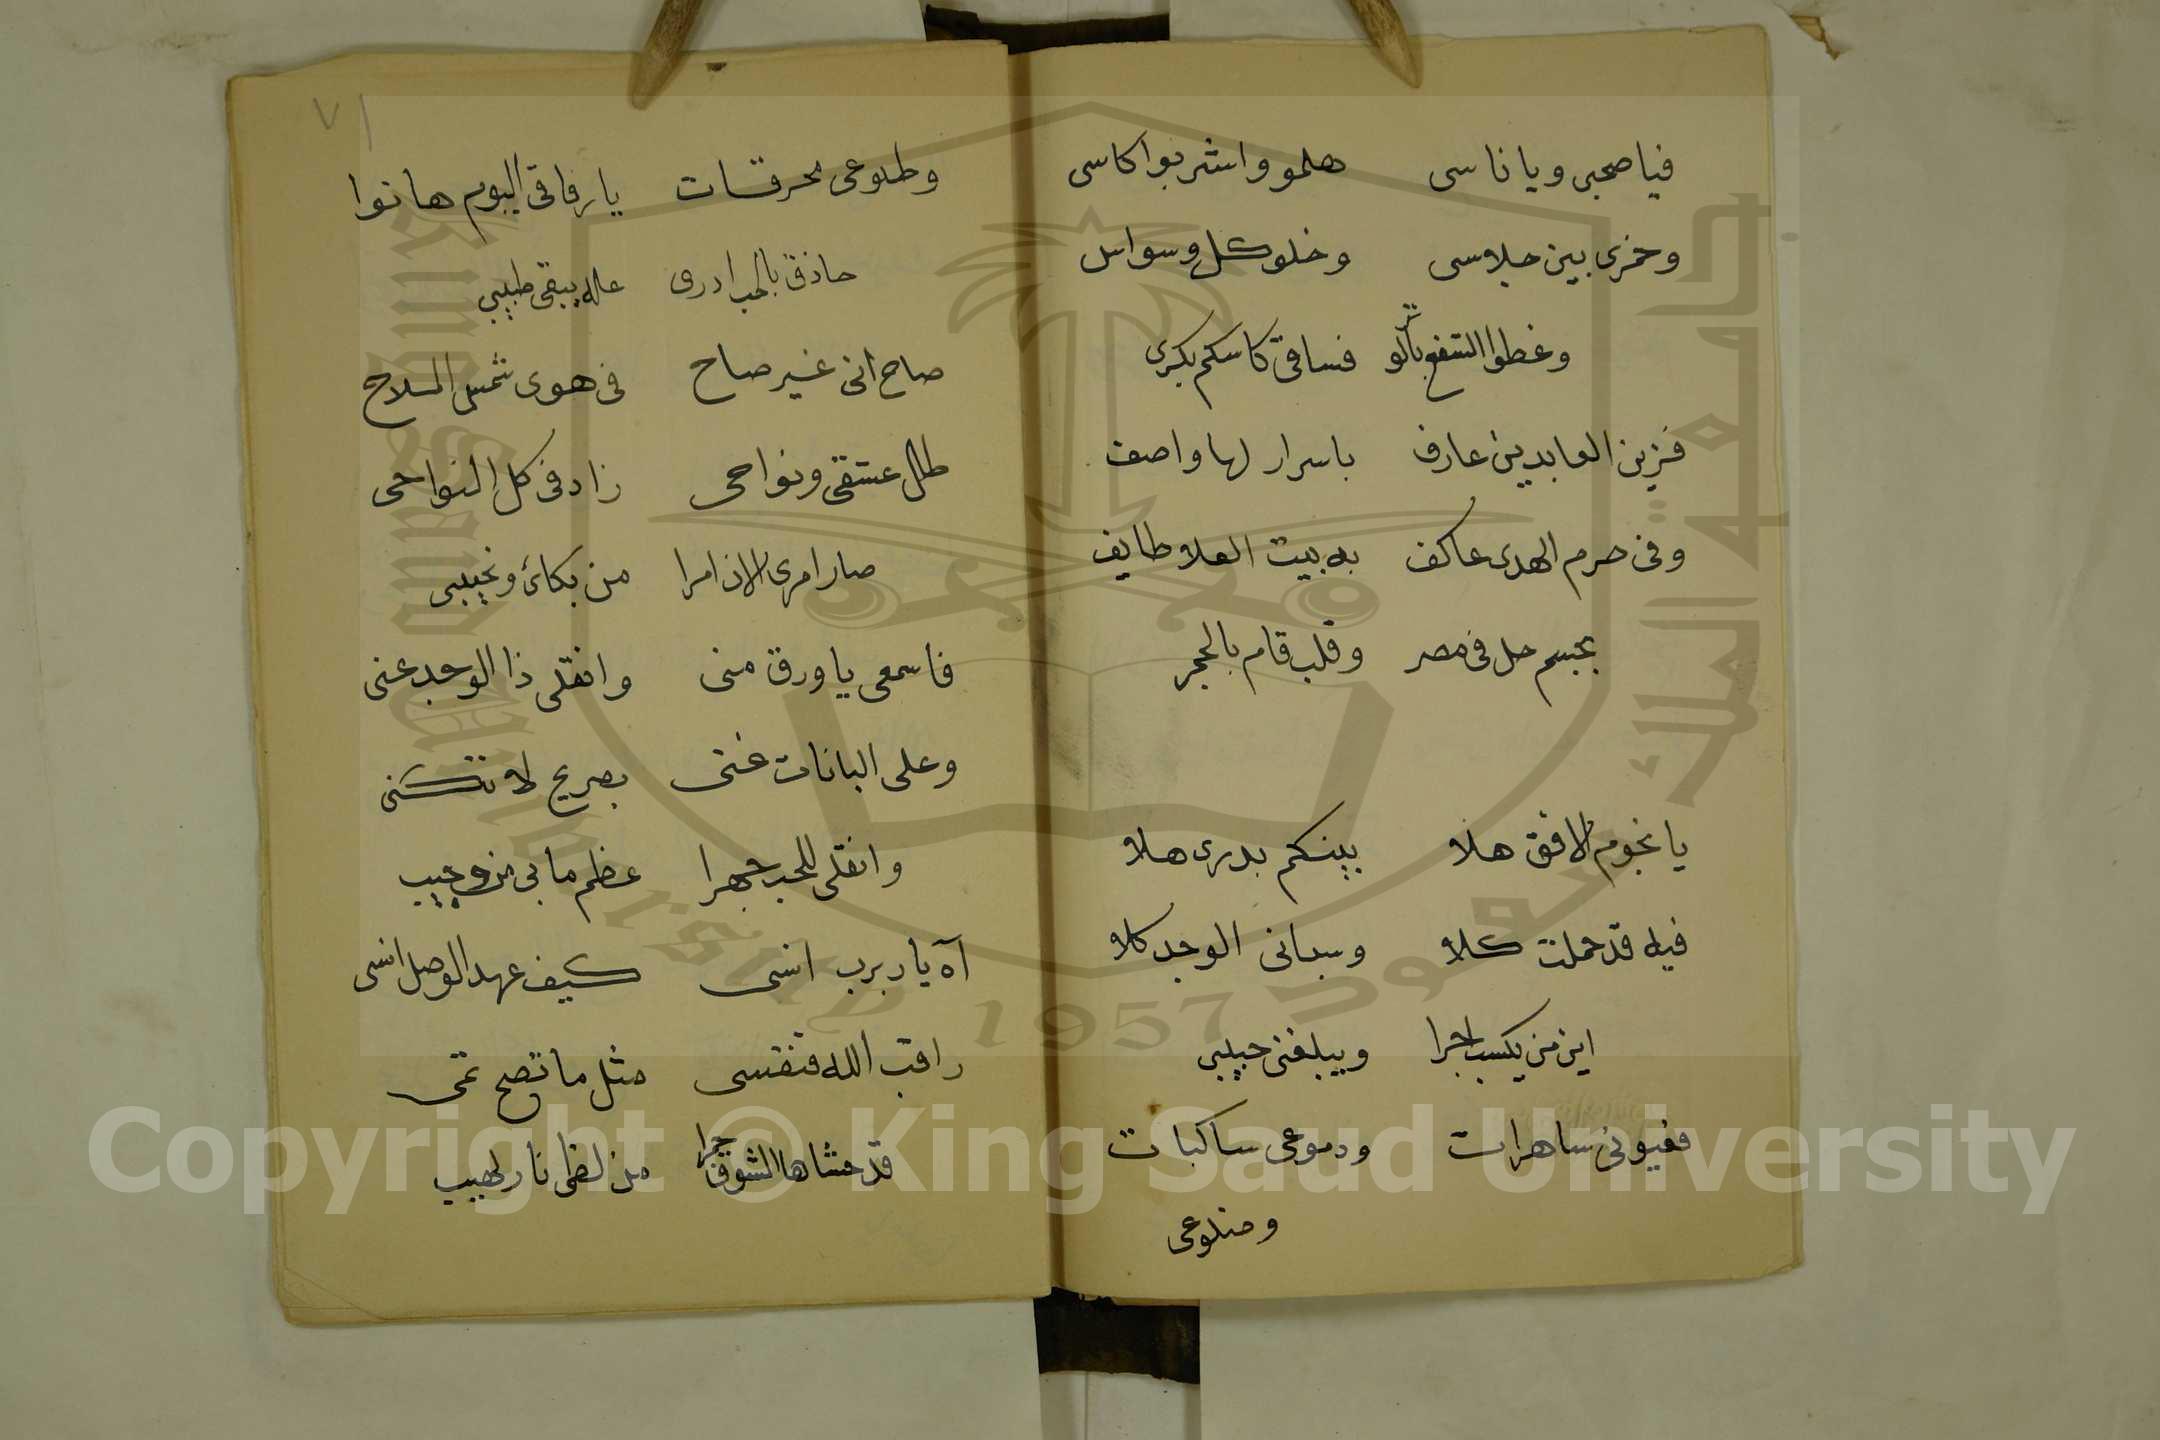 فيا صحبي ويا ناسى هلمو واشربوا كاسى
وخمرى بين جلاسى وخلو كل وسواس
وغطوا الشفع بالوتر فساقى كاسكم بكرى
فزين العابدين عارف باسرار لها واصف
وفى حرم الهدى عاكف به بيت العلا طايف
بجسم حل فى مصر وقلب قام بالحجر
يا نجوم الافق هلا بينكم بدرى هلا
فيه قد حملت كلا وسبانى الوجد كلا
اين من يكسب اجرا ويبلغنى حبيبى
فعيونى ساهرات ودموعى ساكبات
وضلوعى
٧١
وضلوعى محرقات يا رفاقى اليوم هاتوا
حاذق بالحب ادرى عله يبقى طبيبى
صاح انى غير صاح فى هوى شمس الملاح
طال عشقى ونواحى زاد فى كل النواحى
صار امرى الان امرا من بكائ ونحيبى
فاسمعى يا ورق منى وانقلى ذا الوجد عنى
وعلى البانات غنى بصريح لا تتكنى
وانقلى للحب جهرا عظم ما بى من وجيب
آه يا ربرب انسى كيف عهد الوصل انسى
راقب الله فنفسى مثل ما تصبح تمسى
قد حشاها الشوق جمرا من لظى نار لهيب
جامعة الملك سعود
King Saud University
1957
Copyright © King Saud University